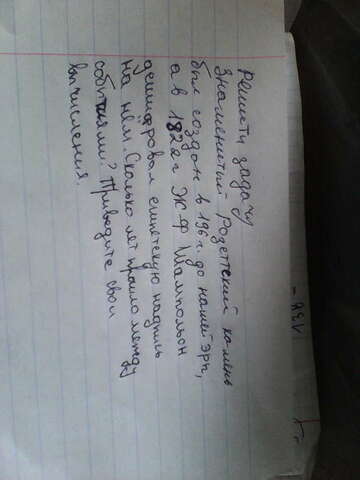 Решити задачу
Знаменитый Розеттский камень
был создан в 196 г. до нашей эры,
а в 1822 г Ж-Ф Шампольон
дешифровал египетскую надпись
на нём. Сколько лет прошло между
событиями? Приведите свои
вычисления.